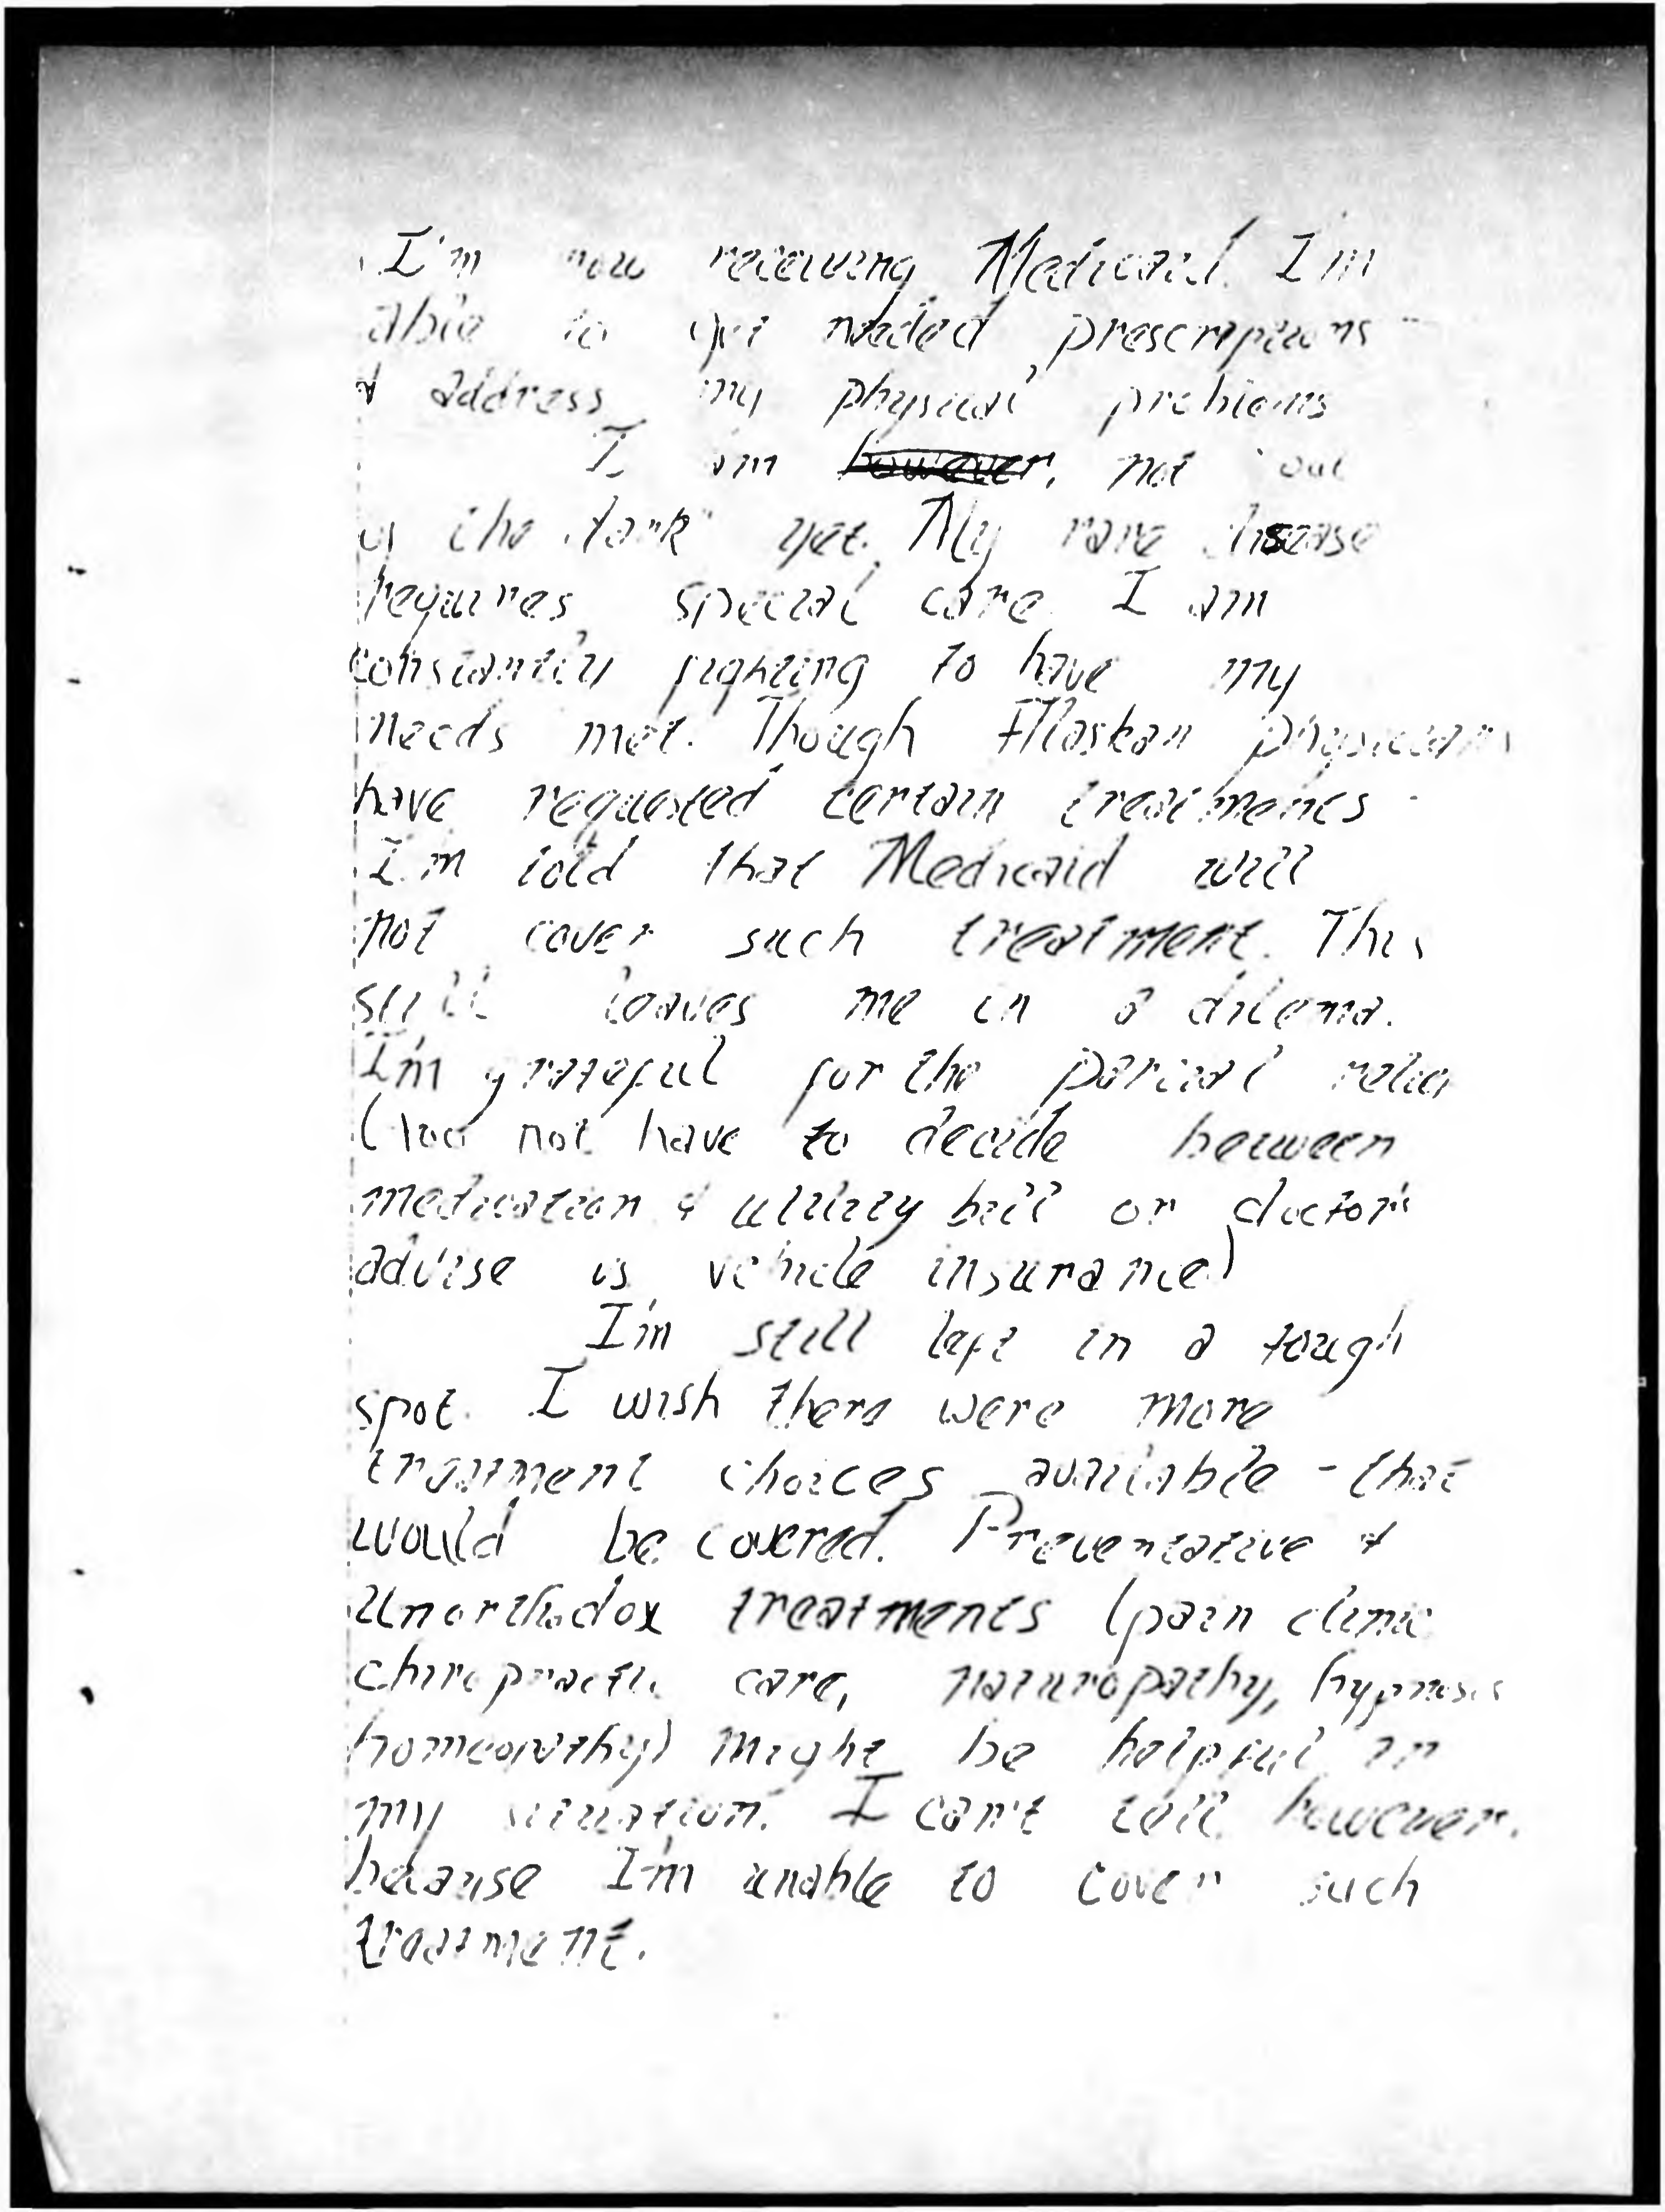 I'm now receiving Medicaid. I'm
able to get needed prescriptions -
& address my physical problems
I am however, not "out
of the dark" yet. My rare disease
requires special care. I am
constantly fighting to have my
needs met. Though Alaskan physicians
have requested certain treatments -
I'm told that Medicaid will
not cover such treatment. This
still leaves me in a dilema.
I'm grateful for the partial relief
(too not have to decide between
medication & utility bill or doctor's
advise vs vehicle insurance)
I'm still left in a tough
spot. I wish there were more
treatment choices available - that
would be covered. Preventative &
Unorthodox treatments (pain clinic
chiropractic care, naturopathy, hypnosis
homeopathy) might be helpful in
my situation. I can't tell however,
because I'm unable to cover such
treatment.